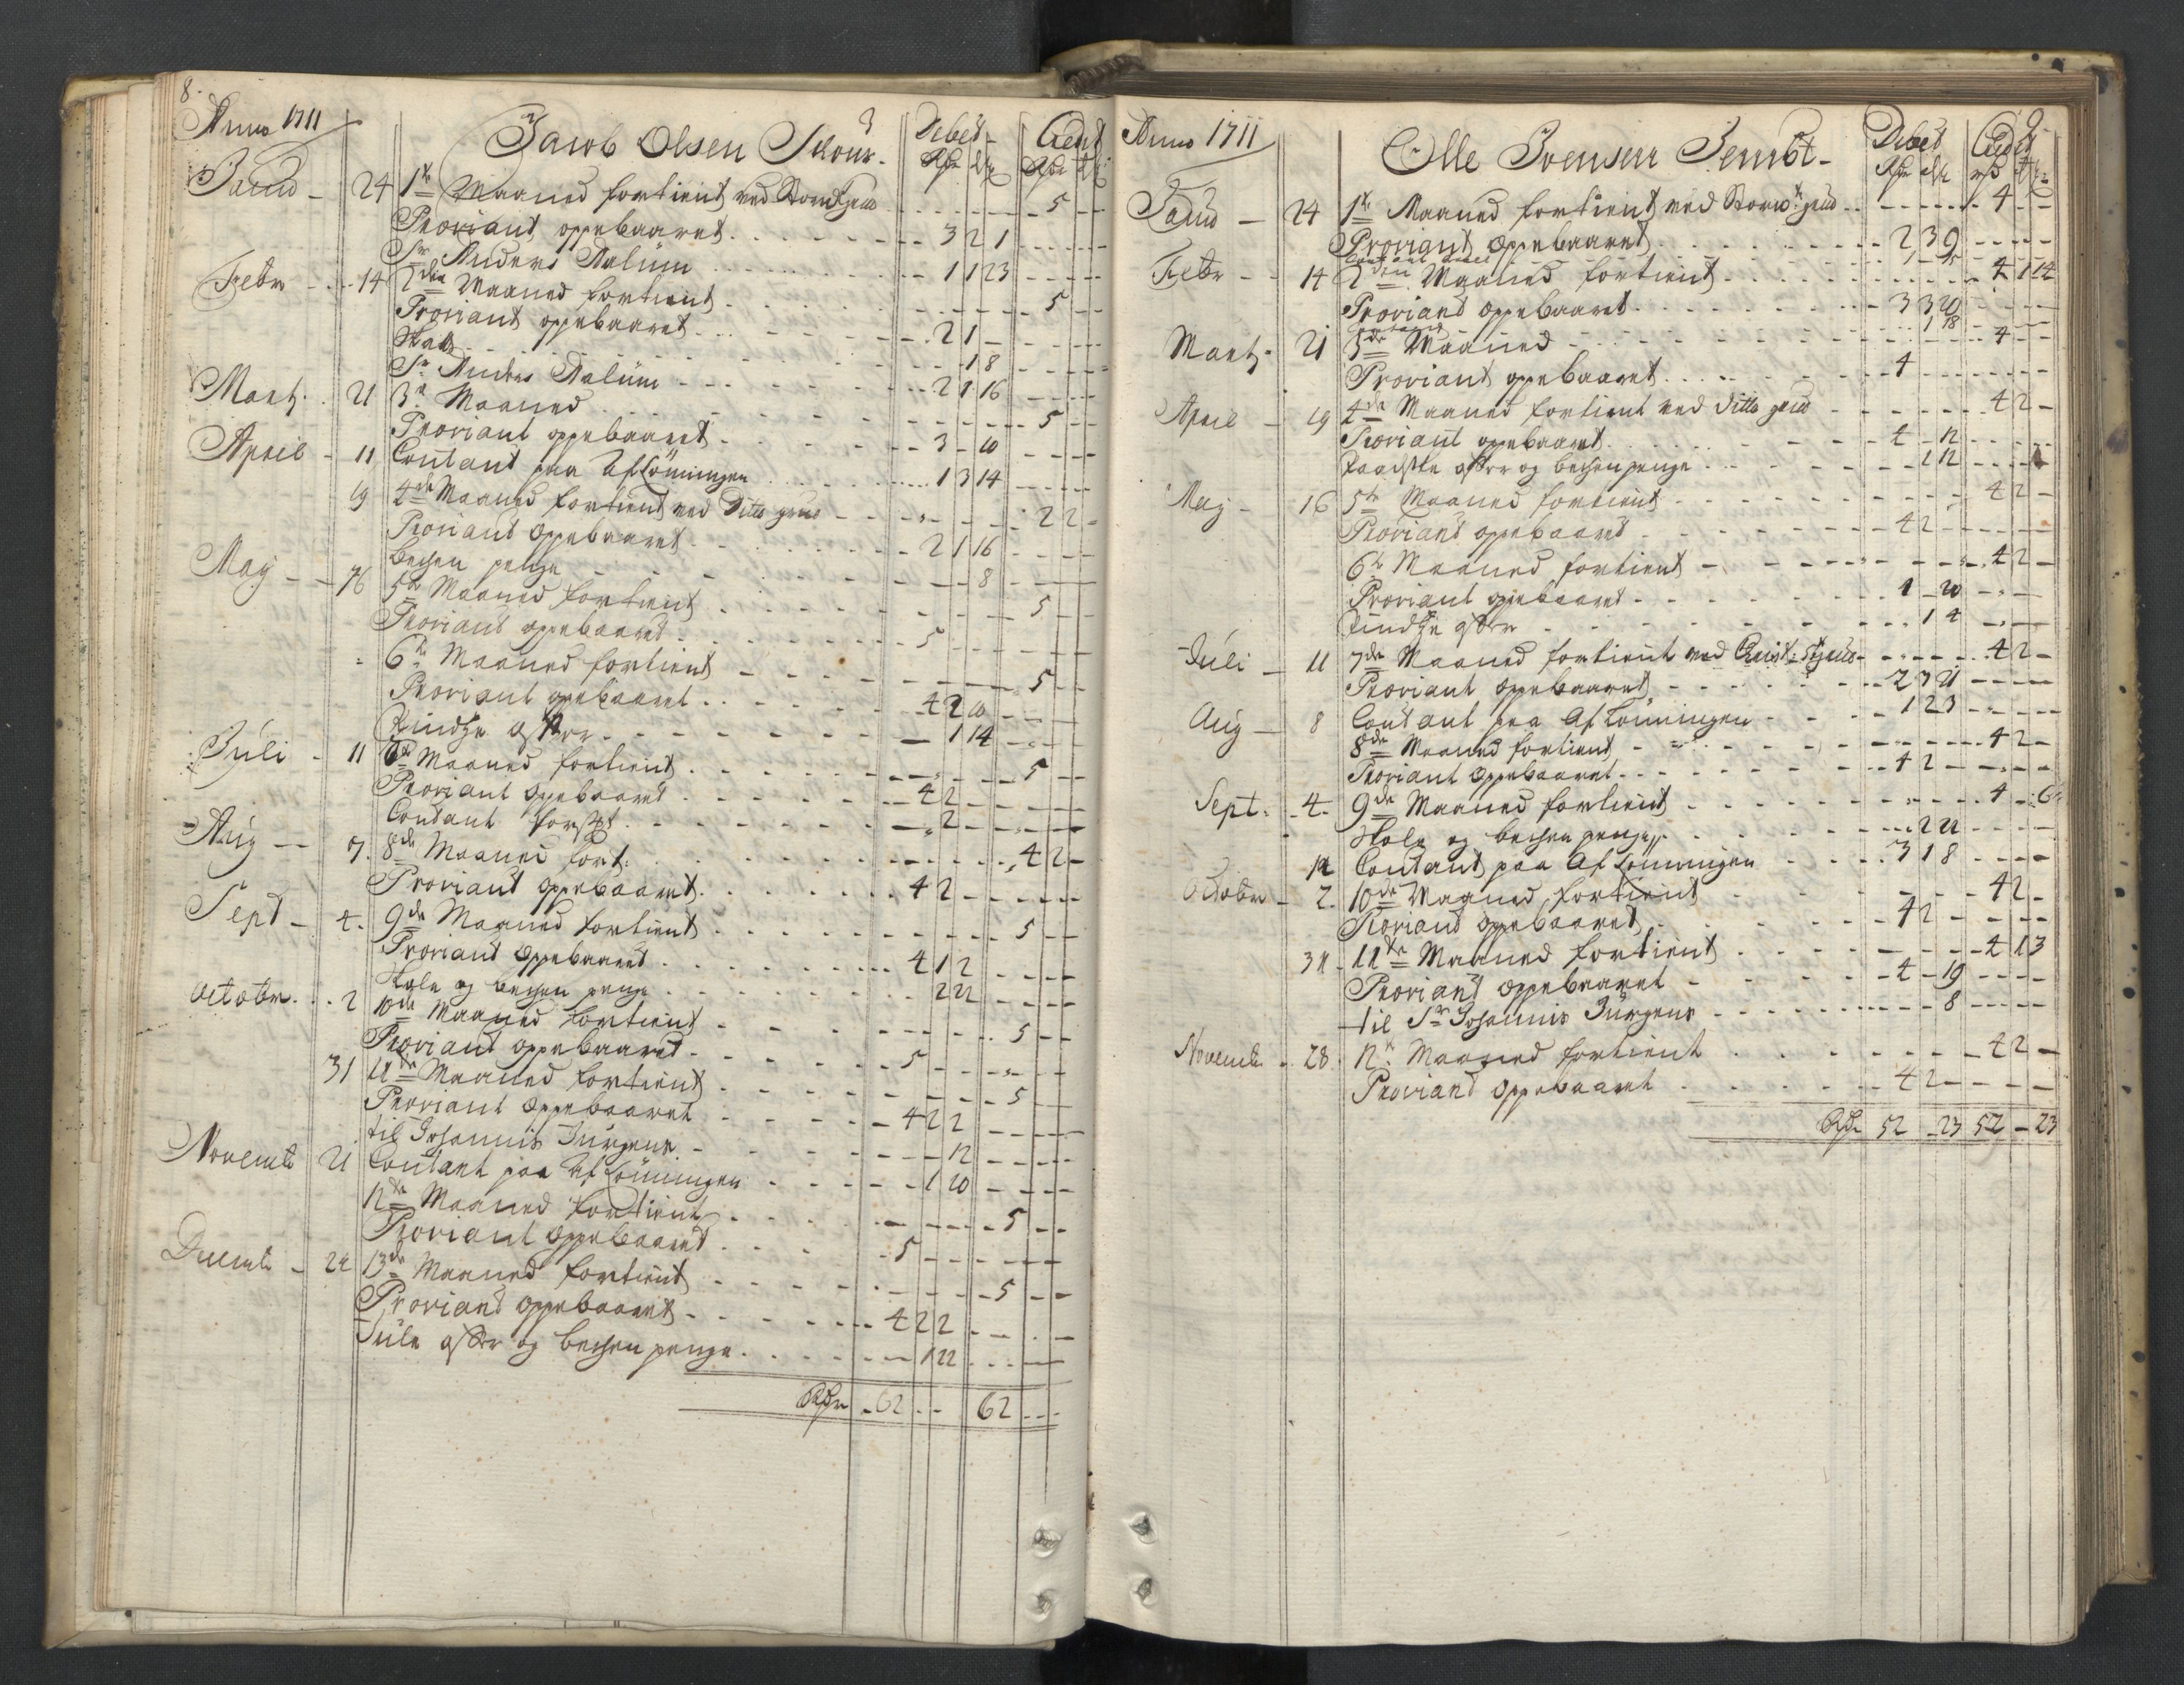 8.
Anno 1711
Jacob Olsen Skour.
Debet Credit
Janu - 24 1te Maaned fortient ved Stordt grue - 5 - -
Proviant oppebaaret 3 2 1
Sr Anders Aalüm 1 1 23
Febr 14 2den Maaned fortient 5 - -
Proviant oppebaaret 2 1 -
Skatt 1 8
Sr Anders Aalüm 2 1 16
Mart. 21 3de Maaned 5 - -
Proviant oppebaaret 3 - 10
April - 11 Contant paa Aflönningen 1 3 14
19 4de Maaned fortient ved Ditto grue 2 2 -
Proviant oppebaaret 2 1 16
bechen penge 8
Maÿ - 16 5te Maaned fortient 5 - -
Proviant oppebaaret 5
6te Maaned fortient 5 - -
Proviant oppebaaret 4 2 10
offer 1 14
Júli - 11 Maaned fortient 5 - -
Proviant oppebaaret 4 2 -
Contant 2 -
Aúg - 7. 8de Maaned fort: 4 2 -
Proviant oppebaaret 4 2 -
Sept - 4. 9de Maaned fortient 5 - -
Proviant oppebaaret 4 1 2
Skole og bechen penge 2 22
Octobr. 2 10de Maaned fortient 5 - -
Proviant oppebaaret 5
31 11te Maaned fortient 5 - -
Proviant oppebaaret 4 2 2
til Johannis Jürgens 12
Novemb 21 Contant paa Aflönningen 1 20
12te Maaned fortient 5 - -
Proviant oppebaaret 5
Decemb - 24 13de Maaned fortient 5 - -
Proviant oppebaaret 4 2 2
Jule offer og bechen penge 1 22
Rdr 62 - - 62 - -
9
Anno 1711
Olle Svensen Sembt -
Debet Credit
Janu - 24 1te Maaned fortient ved Stordt grue 4 - -
Proviant oppebaaret 2 3 9
Febr - 14 2den Maaned fortient 4 1 14
Proviant oppebaaret 3 3 20
1 18
Mart. 21 3de Maaned 4 - -
Proviant oppebaaret 4
April - 19 4de Maaned fortient ved ditto grue 4 2 -
Proviant oppebaaret 4 - 12
Paadske offer og bechen penge 1 12
Maj - 16 5te Maaned fortient 4 2 -
Proviant oppebaaret 4 2
6te Maaned fortient 4 2 -
Proviant oppebaaret 1 - 20
offer 1 4
Júli - 11 7de Maaned fortient ved grue 4 2 -
Proviant oppebaaret 2 3 21
Aúg - 8 Contant paa Aflönningen 1 2 3
8de Maaned fortient 4 2 -
Proviant oppebaaret 4 2 -
Sept. 4. 9de Maaned fortient 4 - 6
Skole og bechen penge 2 22
12 Contant paa Aflönningen 3 1 8
Octobr - 2. 10de Maaned fortient 4 2 -
Proviant oppebaaret 4 2 -
31 - 11te Maaned fortient 4 1 3
Proviant oppebaaret 4 - 19
til Sr Johannis Jürgens 8
Novemb - 28. 12te Maaned fortient 4 2 -
Proviant oppebaaret 4 2 -
Rdr 52 - 23 52 - 23